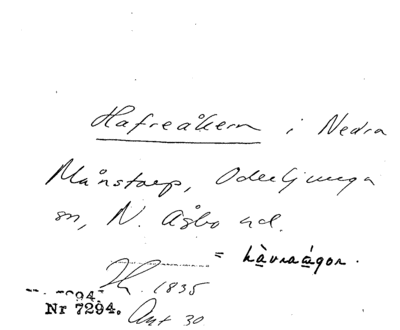 Hafreåkern i Nedra
Månstorp, Oderljunga
sn, N. Åsbo hd.
= hàvraágor.
1835
7294.
Nr 7294. Ant 30